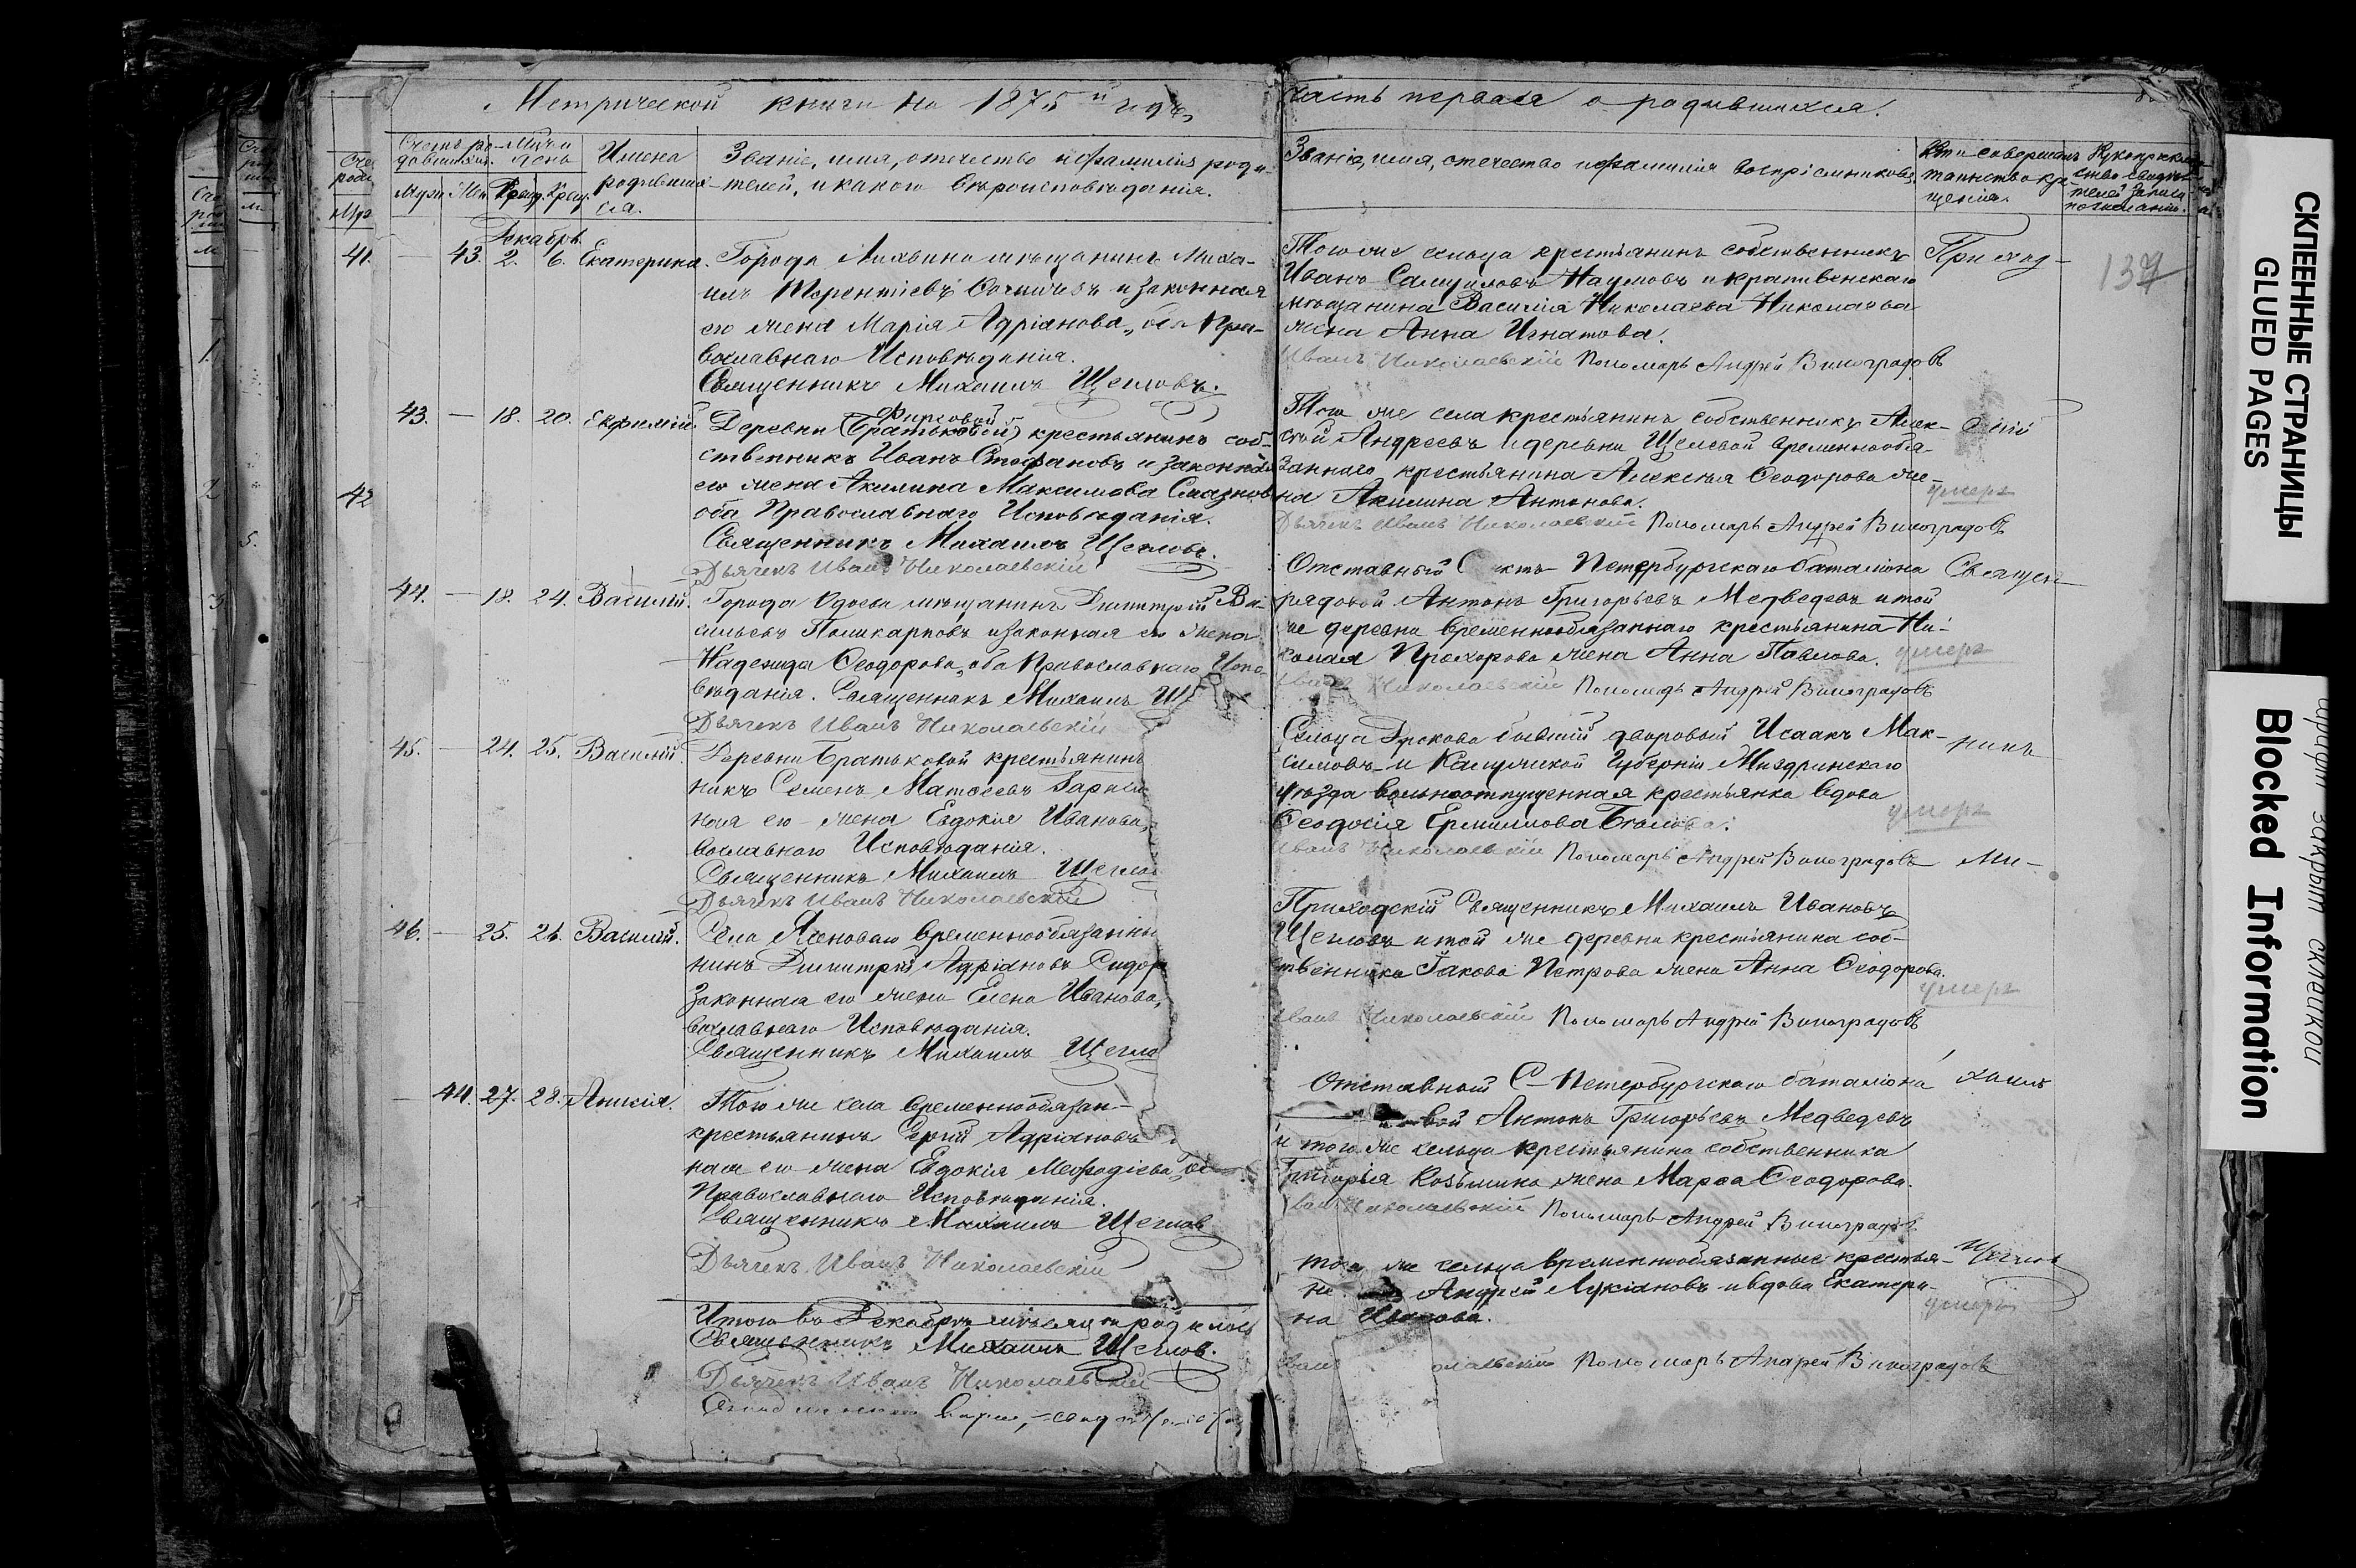 Метрической книги на 1875й годъ,
часть первая о родившихся.
Счетъ ро-
дившихся.
Муж
Жен
Мѣсяцъ и
день
Рожд.
Крещ.
Имена
родивших-
ся.
Званіе, имя, отечество и фамилія роди-
телей, и какого вѣроисповѣданія.
Званіе, имя, отечество и фамилія воспріемниковъ.
Кто совершалъ
таинство кре-
щенія.
Рукоприклад-
ство свидѣ-
телей записи
по желанію.
Декабрь.
43. 2. 6. Екатерина.
Города Лихвина мѣщанинъ Миха-
илъ Терентіевъ и законная
его жена Марія Адріанова, оба Пра-
вославнаго Исповѣданія.
Священникъ Михаилъ Щегловъ.
Того же сельца крестьянинъ собственникъ
Иванъ Самуиловъ Наумовъ и крапивенскаго
мѣщанина Василія Николаева Николаева
жена Анна Игнатова.
Иванъ Николаевскій Пономарь Андрей Виноградовъ
Приход-
137
43. — 18. 20. Евфимій.
Фурсовой
Деревни (Братьковой) крестьянинъ соб-
ственникъ Иванъ Стефановъ и законная
его жена Акилина Максимова
оба Православнаго Исповѣданія.
Священникъ Михаилъ Щегловъ.
Дьячекъ Иванъ Николаевскій
Того же села крестьянинъ собственникъ Алек-
сѣй Андреевъ и деревни Щелевой временнообя-
заннаго крестьянина Алексѣя Ѳеодорова же-
на Акилина Антонова.
Дьячекъ Иванъ Николаевскій Пономарь Андрей Виноградовъ
скій
умеръ
44. — 18. 24. Василій.
Города Одоева мѣщанинъ Димитрій Ва-
сильевъ Поликарповъ и законная его жена
Надежда Ѳеодорова, оба Православнаго Испо-
вѣданія. Священникъ Михаилъ Щ
Дьячекъ Иванъ Николаевскій
Отставный Санктъ-Петербургскаго баталіона
рядовой Антонъ Григорьевъ Медведевъ и той
же деревни временнообязаннаго крестьянина Ни-
колая Прохорова жена Анна Павлова.
Иванъ Николаевскій Пономарь Андрей Виноградовъ
Священ-
умеръ
45. — 24. 25. Василій.
Деревни Братьковой крестьянинъ
никъ Семенъ Матѳеевъ
ная его жена Евдокія Иванова,
вославнаго Исповѣданія.
Священникъ Михаилъ Щегло
Дьячекъ Иванъ Николаевскій
Сельца бывшій дворовый Исаакъ Мак-
симовъ и Калужской Губерніи
уѣзда вольноотпущенная крестьянка вдова
Ѳеодосія Ермилова Бѣлова.
Иванъ Николаевскій Пономарь Андрей Виноградовъ
никъ
умеръ
Ми-
46. — 25. 26. Василій.
Села Ясеноваго временнообязанны
нинъ Димитрій Адріановъ Сидор
законная его жена Елена Иванова,
вославнаго Исповѣданія.
Священникъ Михаилъ Щегло
Приходскій Священникъ Михаилъ Ивановъ
Щегловъ и той же деревни крестьянина соб-
ственника Іакова Петрова жена Анна Ѳеодорова.
Иванъ Николаевскій Пономарь Андрей Виноградовъ
умеръ
— 44. 27. 28. Анисія.
Того же села временнообязан-
крестьянинъ Сергій Адріановъ
ная его жена Евдокія Меѳодіева, оба
Православнаго Исповѣданія.
Священникъ Михаилъ Щеглов
Дьячекъ Иванъ Николаевскій
Отставный С-Петербургскаго баталіона
вой Антонъ Григорьевъ Медведевъ
и того же сельца крестьянина собственника
Григорія Козьмина жена Марѳа Ѳеодорова.
Николаевскій Пономарь Андрей Виноградовъ
хаилъ
того же сельца временнообязанные крестья-
не Андрей Лукіановъ и вдова Екатери-
на Иванова.
Иванъ олаевскій Пономарь Андрей Виноградовъ
Щегловъ
умеръ
Итого въ Декабрѣ мѣсяцѣ родилось
Священникъ Михаилъ Щеглов.
Дьячекъ Иванъ Николаевскій
41.
42
СКЛЕЕННЫЕ СТРАНИЦЫ
GLUED PAGES
закрыт склейкой
Blocked Information